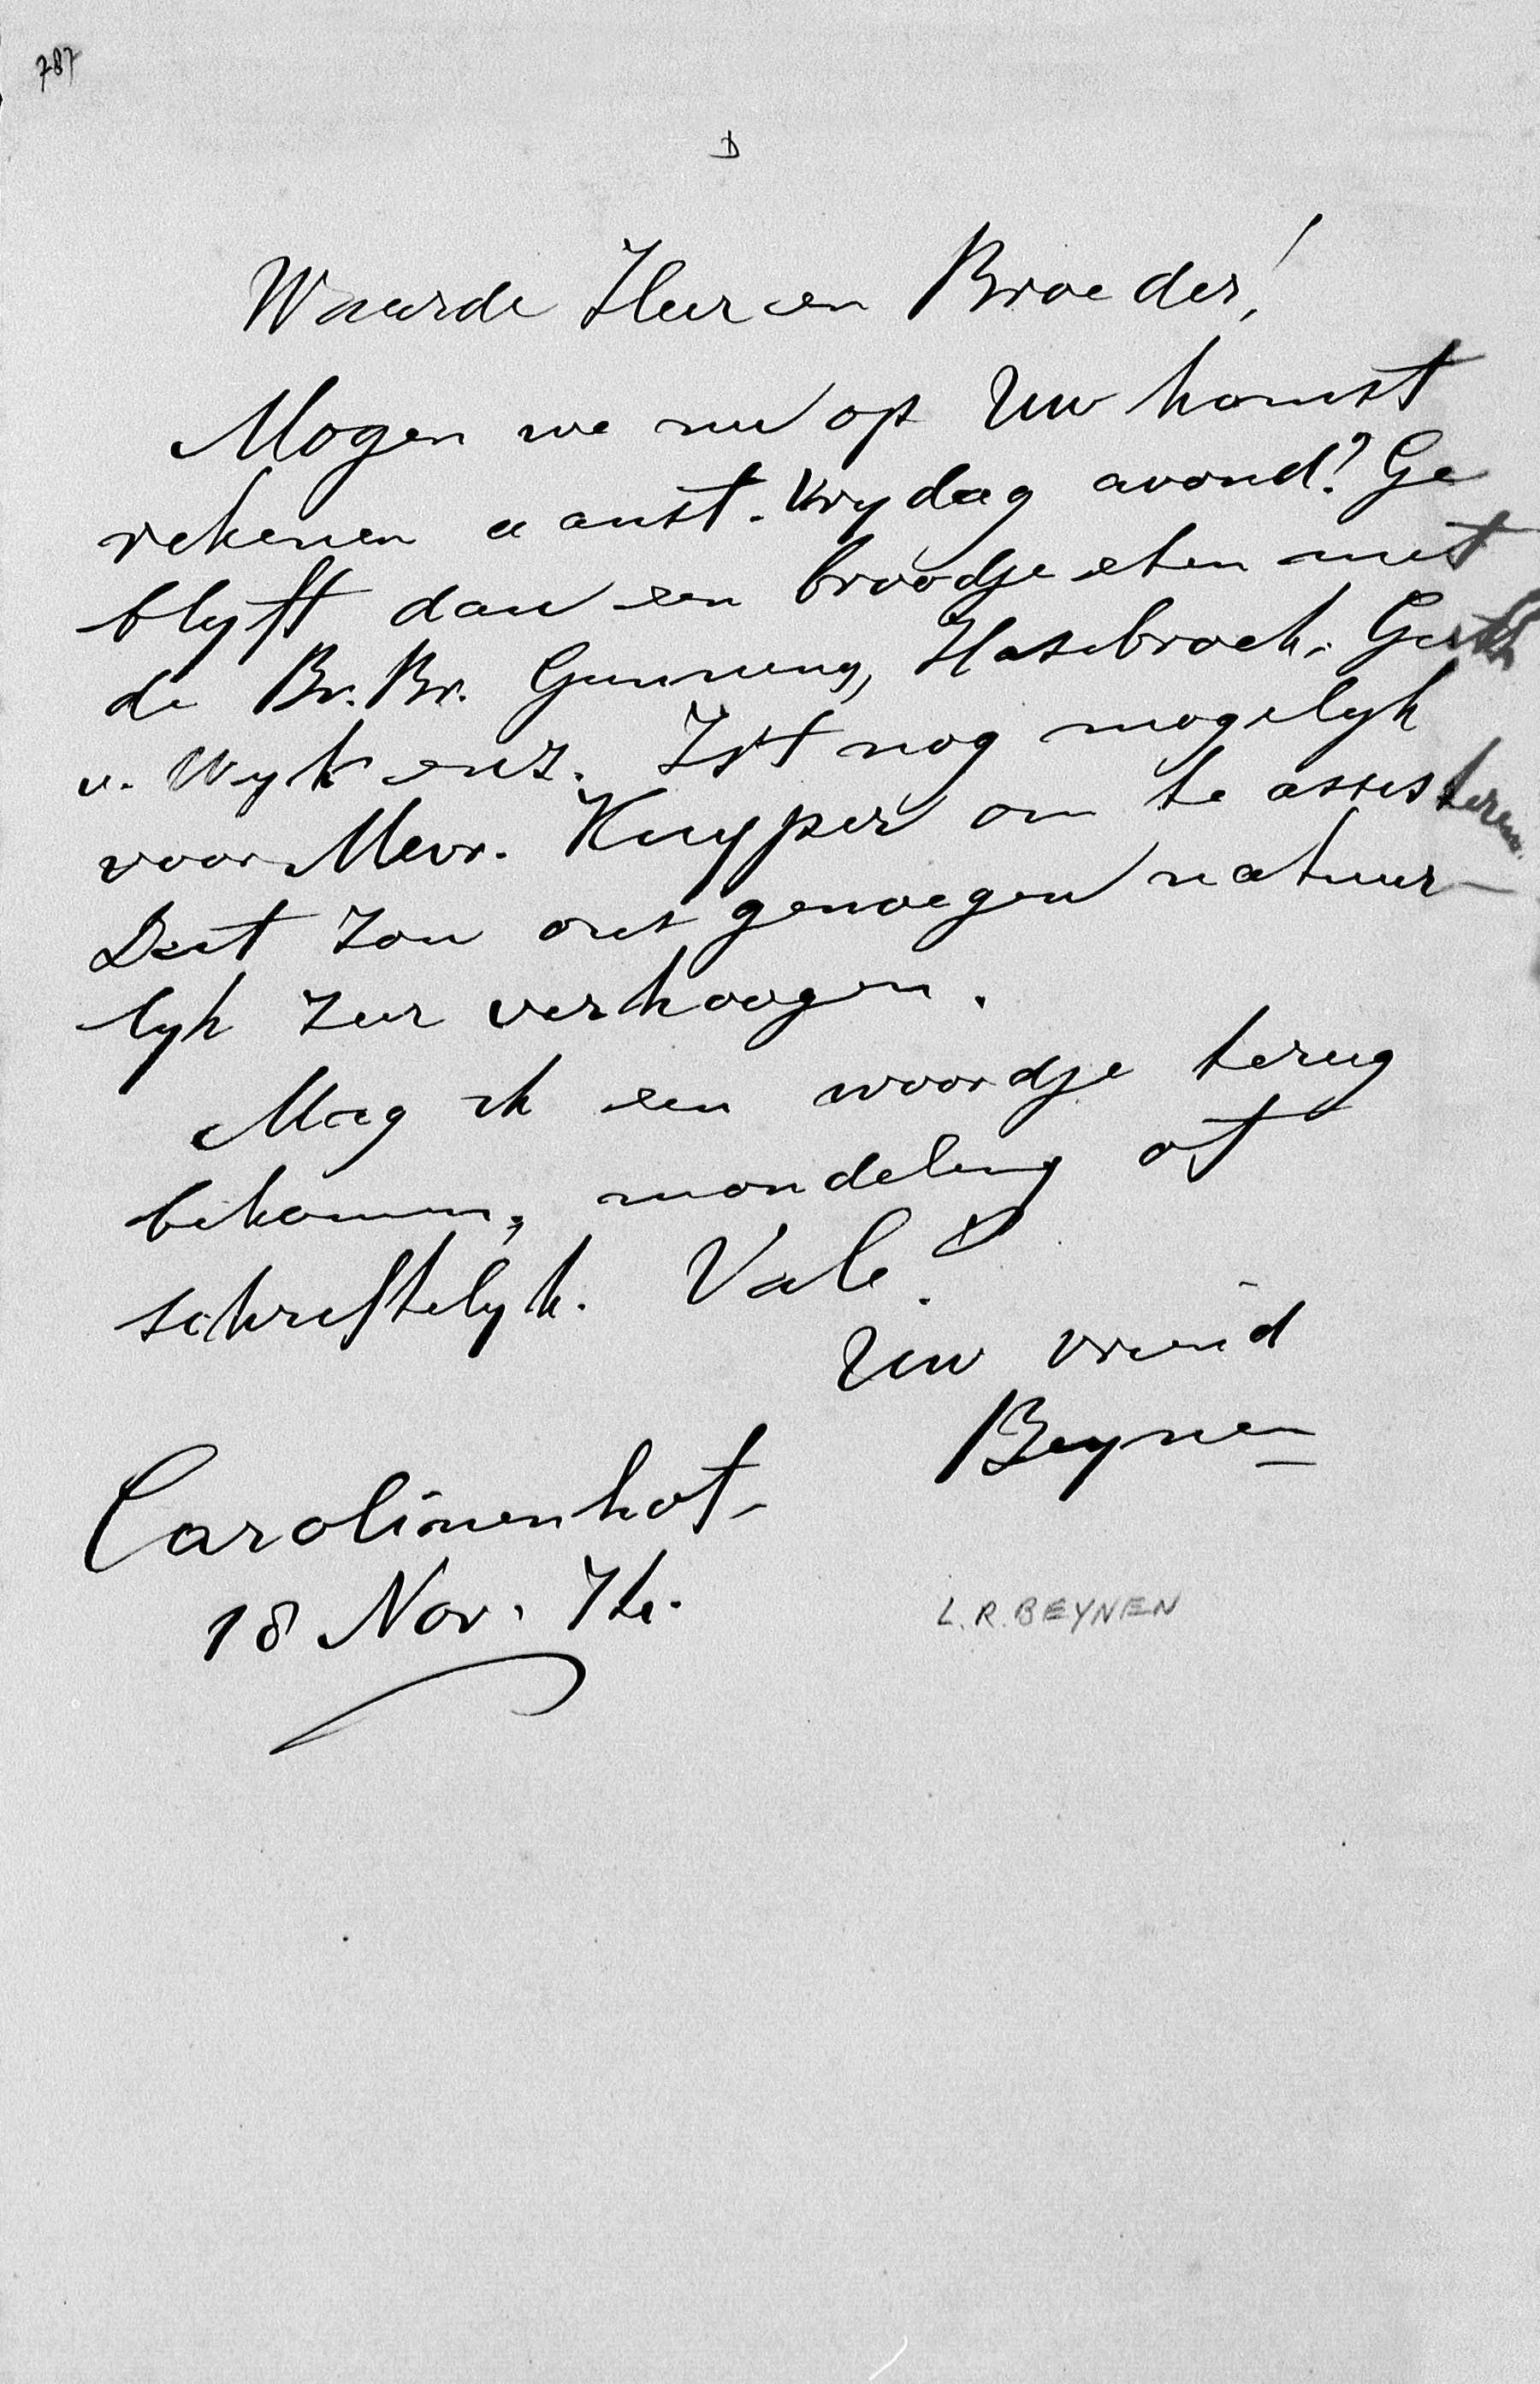 787
D
Waarde Heer en Broeder!
Mogen we nu op Uw komst
rekenen aanst. Vrydag avond? Ge
blyft dan een broodje eten met
de Br. Br. Gunning, Hasebroek, Gerth
v. Wyk enz. Is't nog mogelyk
voor Mevr. Kuyper om te assisteren.
Dat zou ons genoegen natuur-
lyk zeer verhoogen.
Mag ik een woordje terug
bekomen, mondeling of
schriftelyk. Vale!
Uw vriend
Beynen
Carolinenhof
18 Nov. 74.
L.R. BEYNEN